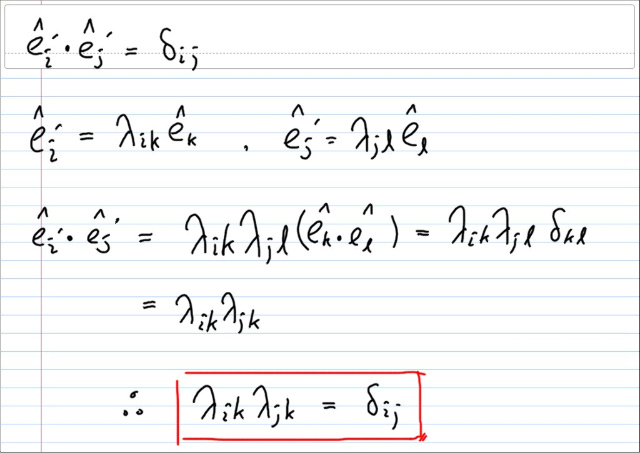 ê_i′ · ê_j′ = δ_ij
ê_i′ = λ_ik ê_k , ê_j′ = λ_jl ê_l
ê_i′ · ê_j′ = λ_ik λ_jl (ê_k · ê_l) = λ_ik λ_jl δ_kl
= λ_ik λ_jk
∴ λ_ik λ_jk = δ_ij